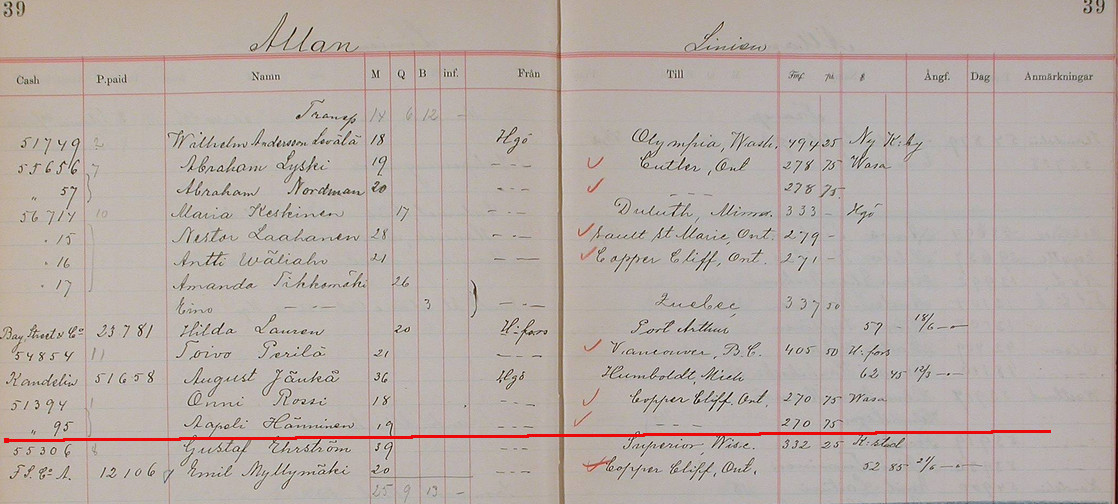 39 39
Allan Linien
Cash P.paid Namn M Q B inf. Från Till Fmf. pi. $ Ångf. Dag Anmärkningar
Transp 14 6 12 –
51749 2 Wilhelm Andersson Levälä 18 Hgö Olympia, Wash. 494 25 Ny K:by
55656 7 Abraham Lyski 19 - - - ✓ Cutler, Ont 278 75 Wasa
" 57 Abraham Nordman 20 - - - ✓ - - - 278 75
56714 10 Maria Keskinen 17 - - - Duluth, Minn. 333 - Hgö
" 15 Nestor Laahanen 28 - - - ✓ Sault St Marie, Ont. 279 -
" 16 Antti Wäliaho 21 - - ✓ Copper Cliff, Ont. 271 -
" 17 Amanda Tikkamäki 26
Eino - - - 3 - - - Quebec, 337 50
Bay, Street & Co 23781 Hilda Lauren 20 H:fors Port Arthur 57 18/6 - - -
54854 11 Toivo Perilä 21 - - - ✓ Vancouver, B.C. 405 50 H:fors
Kandelin 51658 August Jäukä 36 Hgö Humboldt, Mich 62 45 12/3 - - -
51394 1 Onni Rossi 18 - - - ✓ Copper Cliff, Ont. 270 75 Wasa
" 95 Aapoli Hänninen 19 - - - ✓ - - - 270 75
55306 8 Gustaf Ehrström 39 - - - Superior, Wisc. 332 25 K:stad
F.S. Co A. 12106 7 Emil Myllymäki 20 - - - ✓ Copper Cliff, Ont. 52 85 21/6 - - -
25 9 13 –